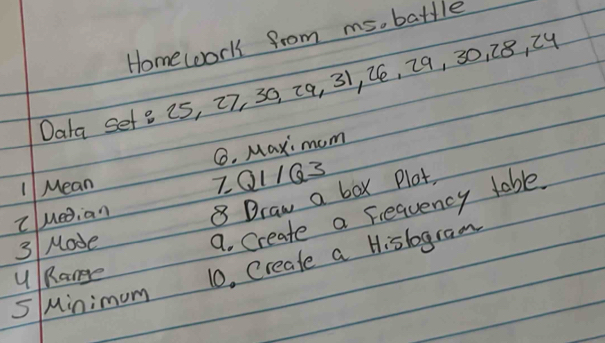 Homework from ms. battle
Data set: 25, 27, 30, 29, 31, 26, 29, 30, 28, 24
1 Mean
2 Median
3 Mode
4 Range
5 Minimum
6. Maximum
7. Q1 / Q3
8 Draw a box Plot.
9. Create a frequency table.
10. Create a Histogram